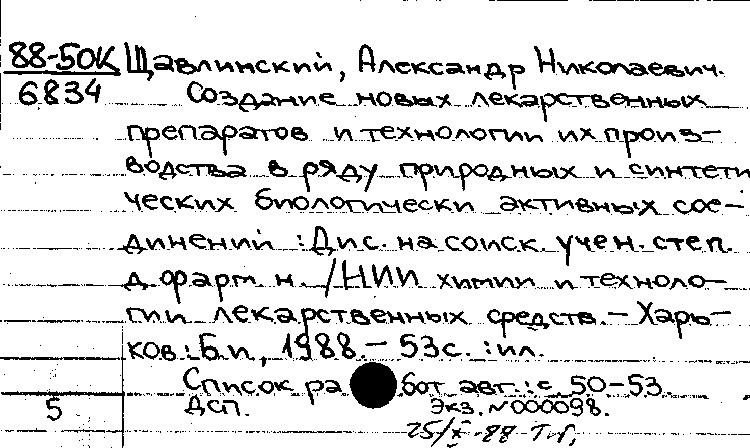 88-50К Щавлинский, Александр Николаевич.
6834 Создание новых лекарственных
препаратов и технологии их произ-
водства в ряду природных и синтети
ческих биологически активных сое-
динений : Дис. на соиск. учен. степ.
д. фарм. н. / НИИ химии и техноло-
гии лекарственных средств. - Харь-
ков : Б.и, 1988. - 53с. : ил.
Список ра бот авт. : с 50-53.
5 ДСП. Экз. N 000098.
25/X-88